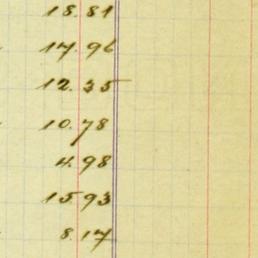 18.81
17.96
12.35
10.78
4.98
15 93
8.17